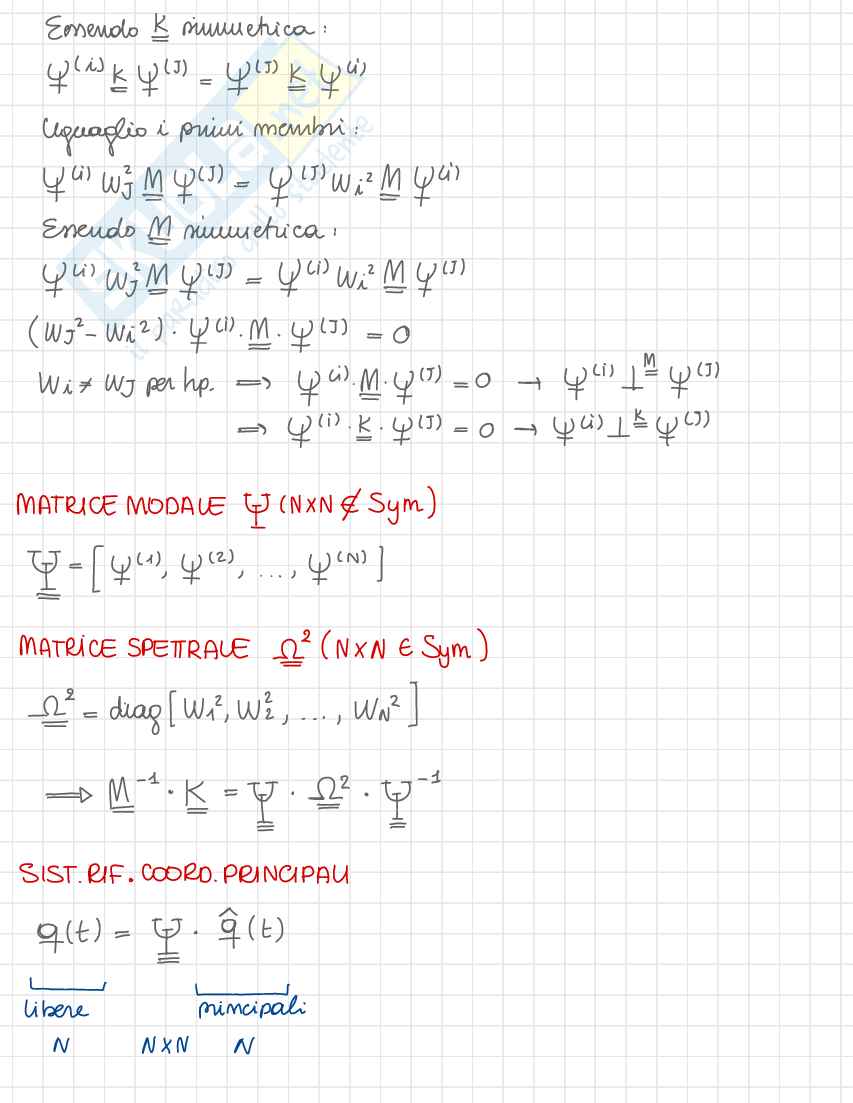 Essendo K simmetrica:
Ψ⁽ⁱ⁾ K Ψ⁽ᴶ⁾ = Ψ⁽ᴶ⁾ K Ψ⁽ⁱ⁾
Uguaglio i primi membri:
Ψ⁽ⁱ⁾ W_J² M Ψ⁽ᴶ⁾ = Ψ⁽ᴶ⁾ W_i² M Ψ⁽ⁱ⁾
Essendo M simmetrica:
Ψ⁽ⁱ⁾ W_J² M Ψ⁽ᴶ⁾ = Ψ⁽ⁱ⁾ W_i² M Ψ⁽ᴶ⁾
(W_J² - W_i²) · Ψ⁽ⁱ⁾ · M · Ψ⁽ᴶ⁾ = 0
W_i ≠ W_J per hp. ⇒ Ψ⁽ⁱ⁾ · M · Ψ⁽ᴶ⁾ = 0 → Ψ⁽ⁱ⁾ ⊥ᴹ Ψ⁽ᴶ⁾
⇒ Ψ⁽ⁱ⁾ · K · Ψ⁽ᴶ⁾ = 0 → Ψ⁽ⁱ⁾ ⊥ᴷ Ψ⁽ᴶ⁾
MATRICE MODALE Ψ (N×N ∉ Sym)
Ψ = [Ψ⁽¹⁾, Ψ⁽²⁾, ..., Ψ⁽ᴺ⁾]
MATRICE SPETTRALE Ω² (N×N ∈ Sym)
Ω² = diag [W₁², W₂², ..., W_N²]
⇒ M⁻¹ · K = Ψ · Ω² · Ψ⁻¹
SIST. RIF. COORD. PRINCIPALI
q(t) = Ψ · q̂(t)
libere principali
N N×N N